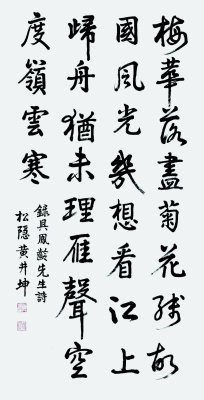 梅華落盡菊花殘故
國風光幾想看江上
歸舟猶未理雁聲空
度嶺雲寒
錄吳鳳齡先生詩
松隱黃井坤